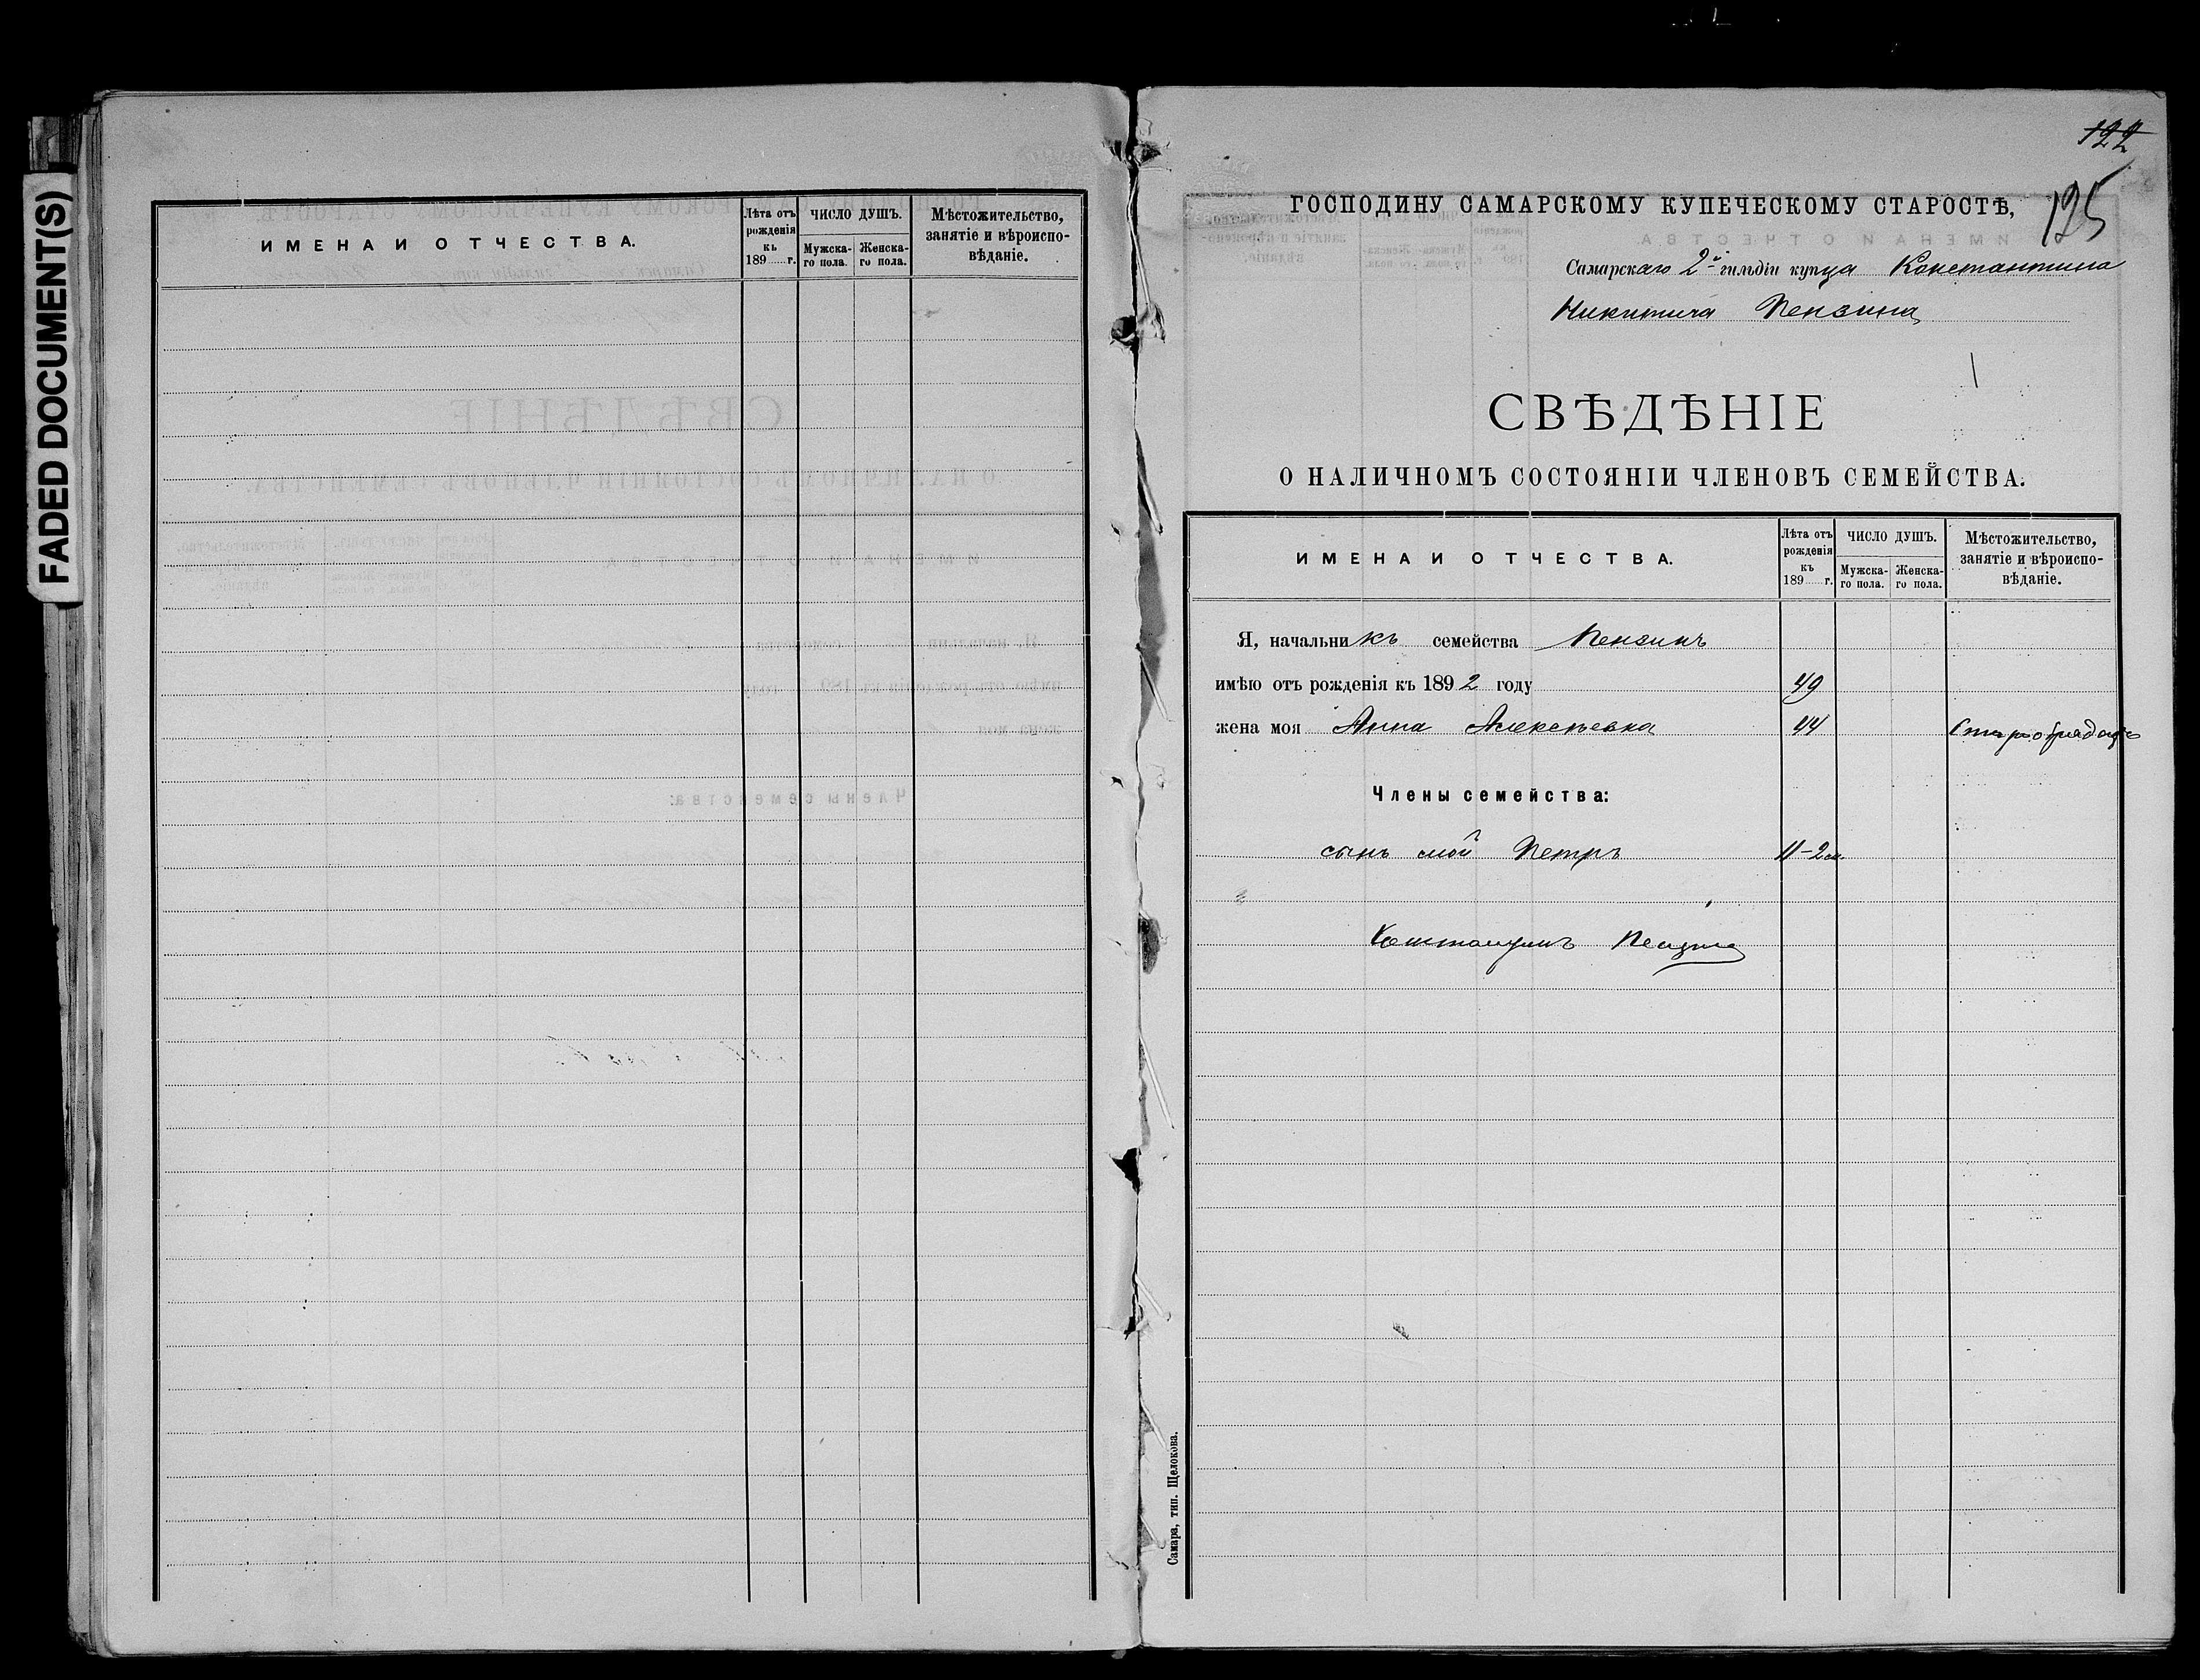 FADED DOCUMENT(S)
ИМЕНА И ОТЧЕСТВА.
Лѣта отъ рожденія къ 189 г.
ЧИСЛО ДУШЪ.
Мужска-го пола.
Женска-го пола.
Мѣстожительство, занятіе и вѣроиспо-вѣданіе.
122
125
ГОСПОДИНУ САМАРСКОМУ КУПЕЧЕСКОМУ СТАРОСТѢ,
Самарскаго 2й гильдіи купца Константина
Никитича Пензина
СВѢДѢНІЕ
О НАЛИЧНОМЪ СОСТОЯНІИ ЧЛЕНОВЪ СЕМЕЙСТВА.
ИМЕНА И ОТЧЕСТВА.
Лѣта отъ рожденія къ 189 г.
ЧИСЛО ДУШЪ.
Мужска-го пола.
Женска-го пола.
Мѣстожительство, занятіе и вѣроиспо-вѣданіе.
Я, начальникъ семейства Пензинъ
имѣю отъ рожденія къ 1892 году 49
жена моя Анна Алексѣевна 44
Члены семейства:
сынъ мой Петръ 11-2 м.
Константинъ Пензинъ
Самара, тип. Щелокова.